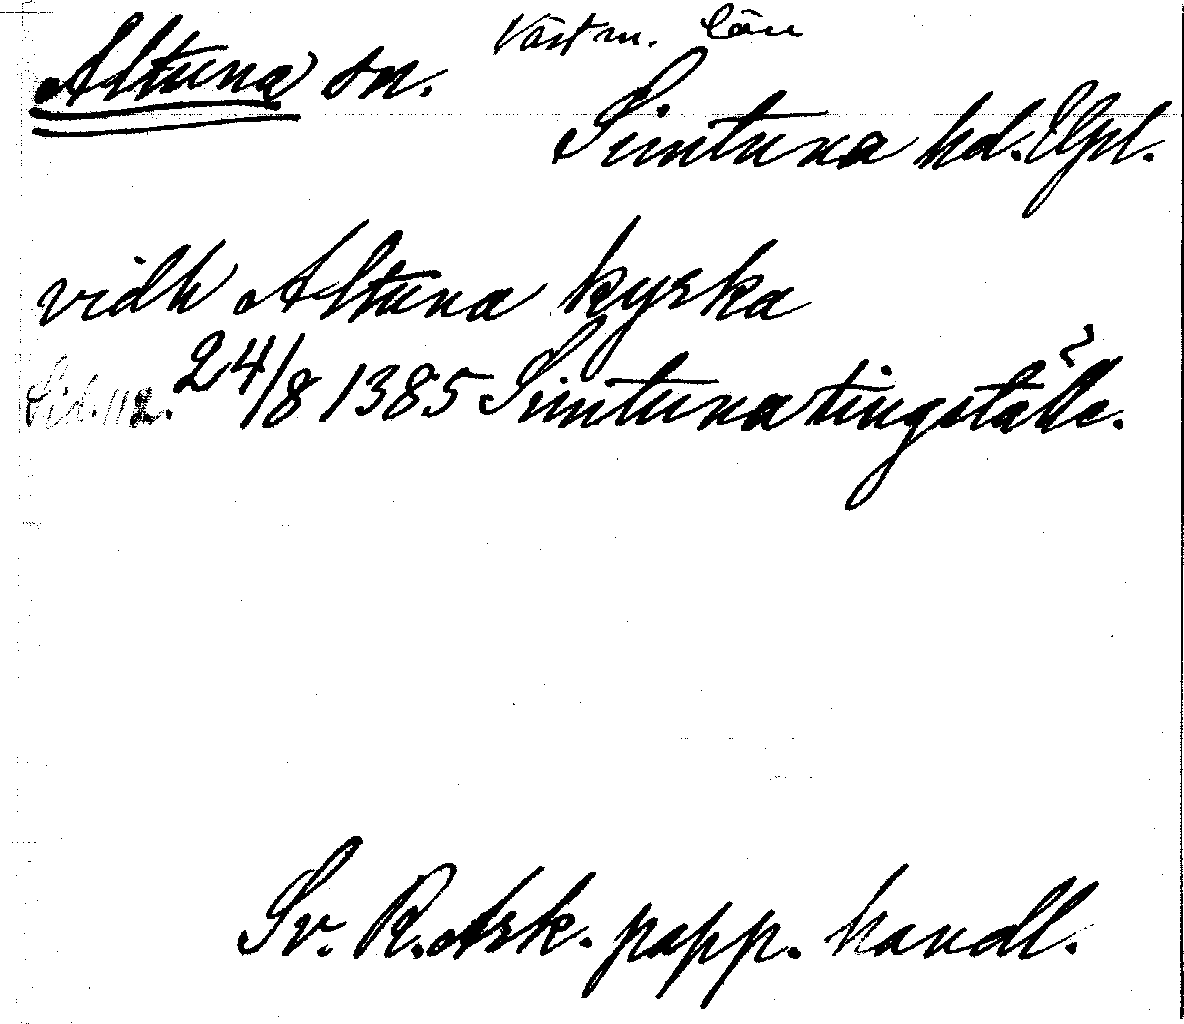 Altuna sn. Västm. län
Simtuna hd. Upl.
vidh Altuna kyrka
Sid. 112. 24/8 1385 Simtuna tingställe.
Sv. R. Ark. papp. handl.